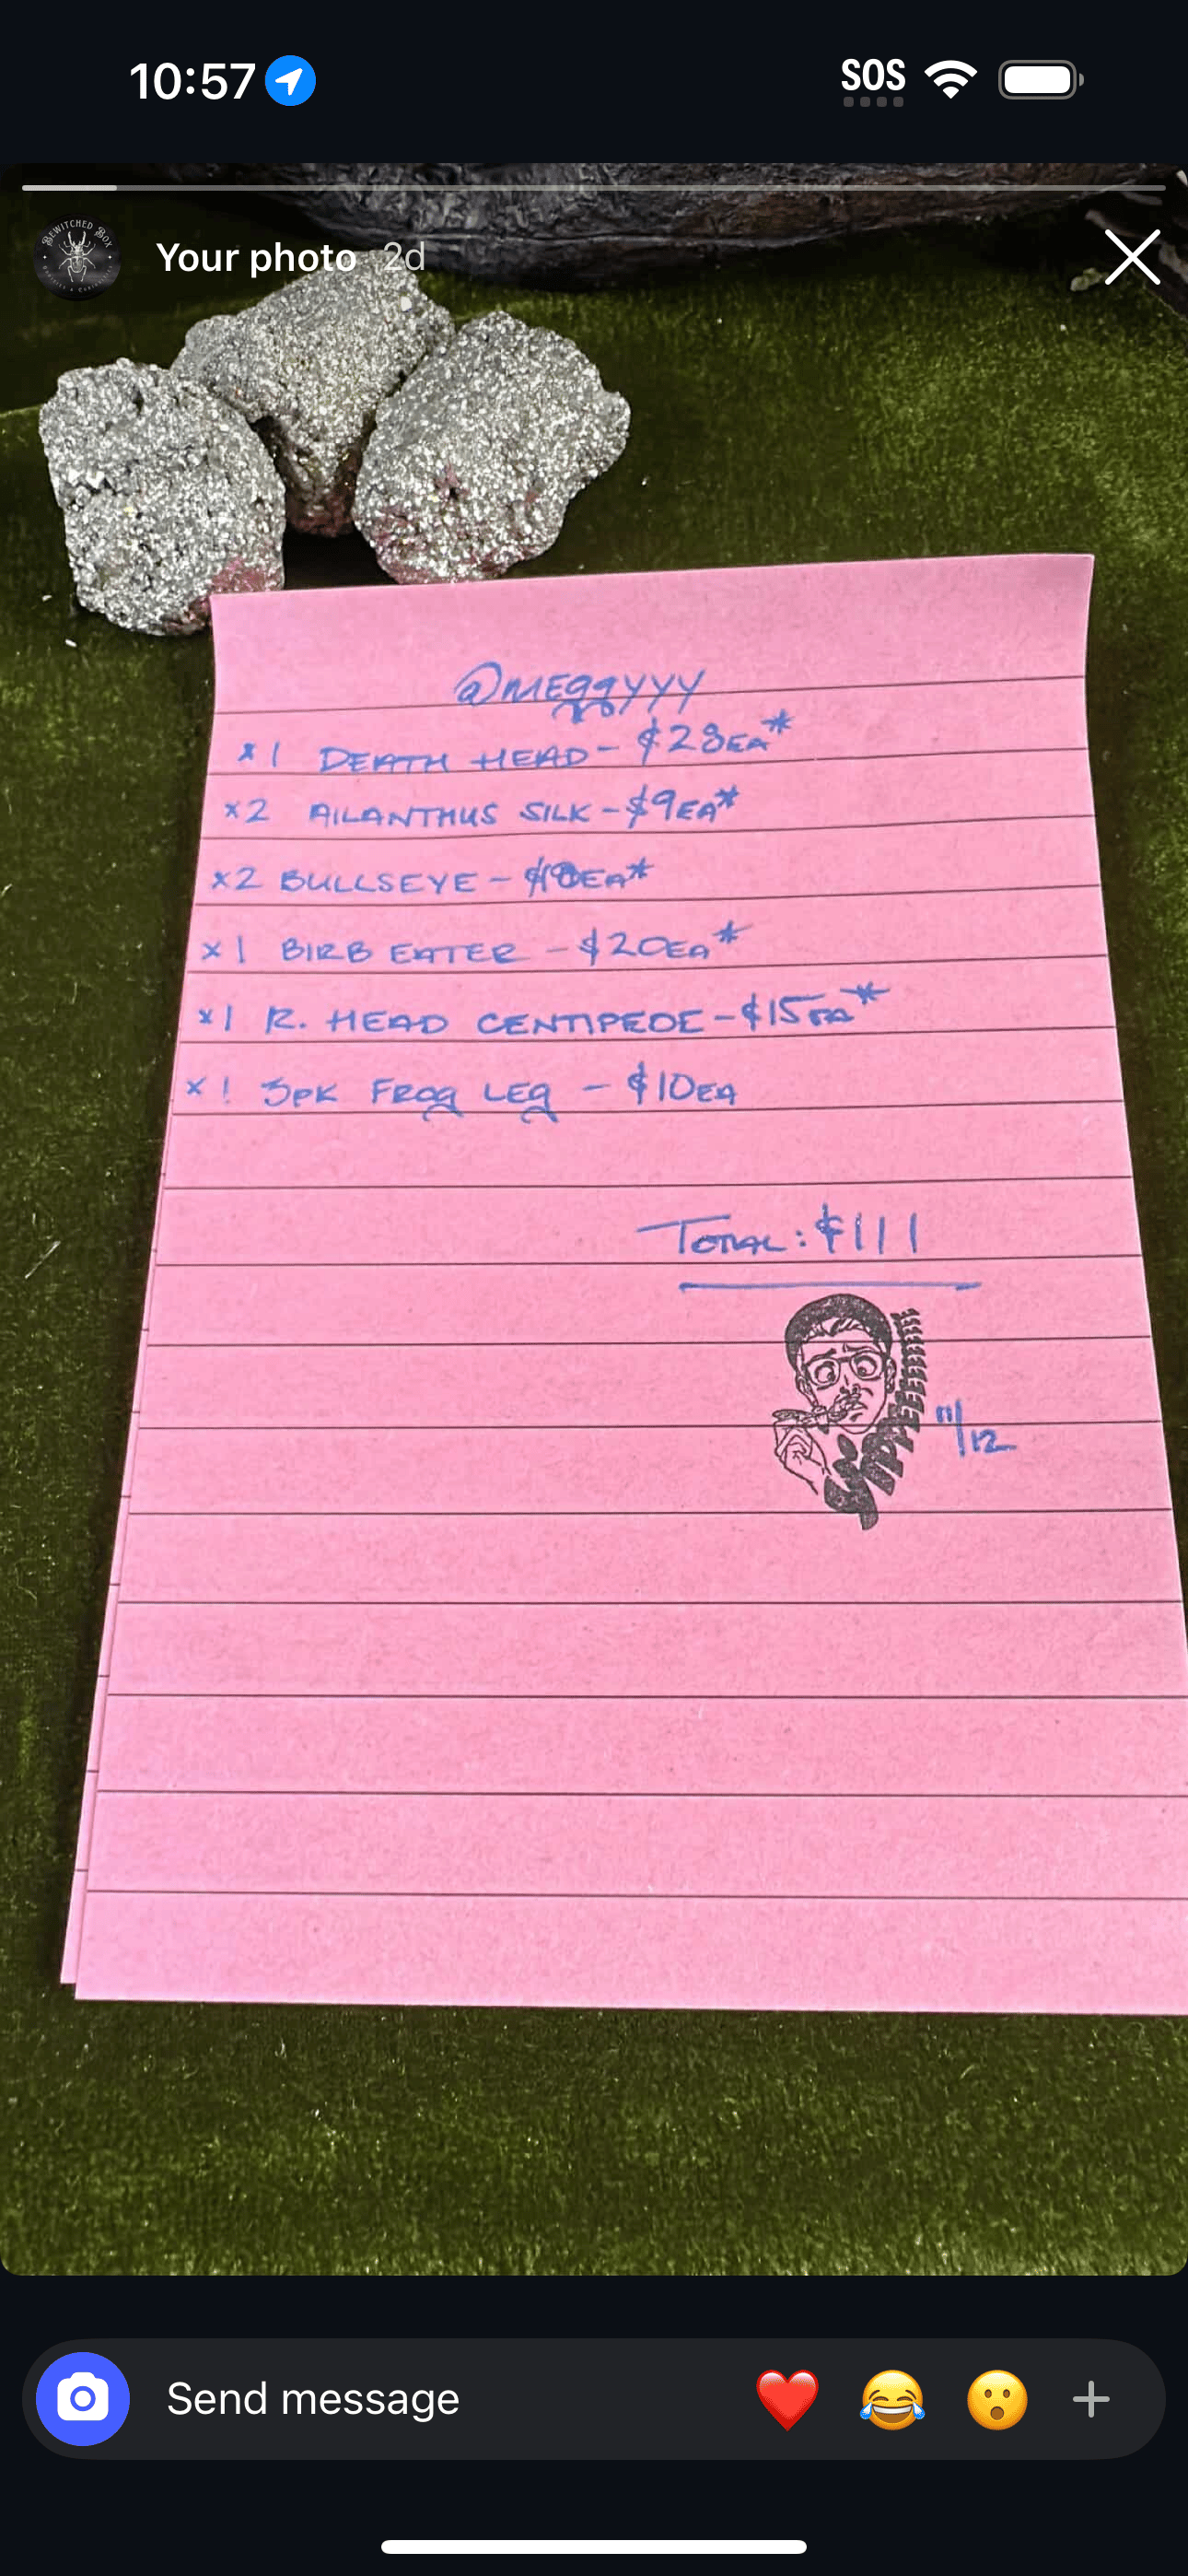 10:57
SOS
BEWITCHED BOX
Your photo 2d
@MEggyyy
x1 DEATH HEAD - $28EA*
x2 AILANTHUS SILK - $9EA*
x2 BULLSEYE - $10EA*
x1 BIRB EATER - $20EA*
x1 R. HEAD CENTIPEDE - $15EA*
x1 3PK FROg LEg - $10EA
TOTAL: $111
11/12
Send message